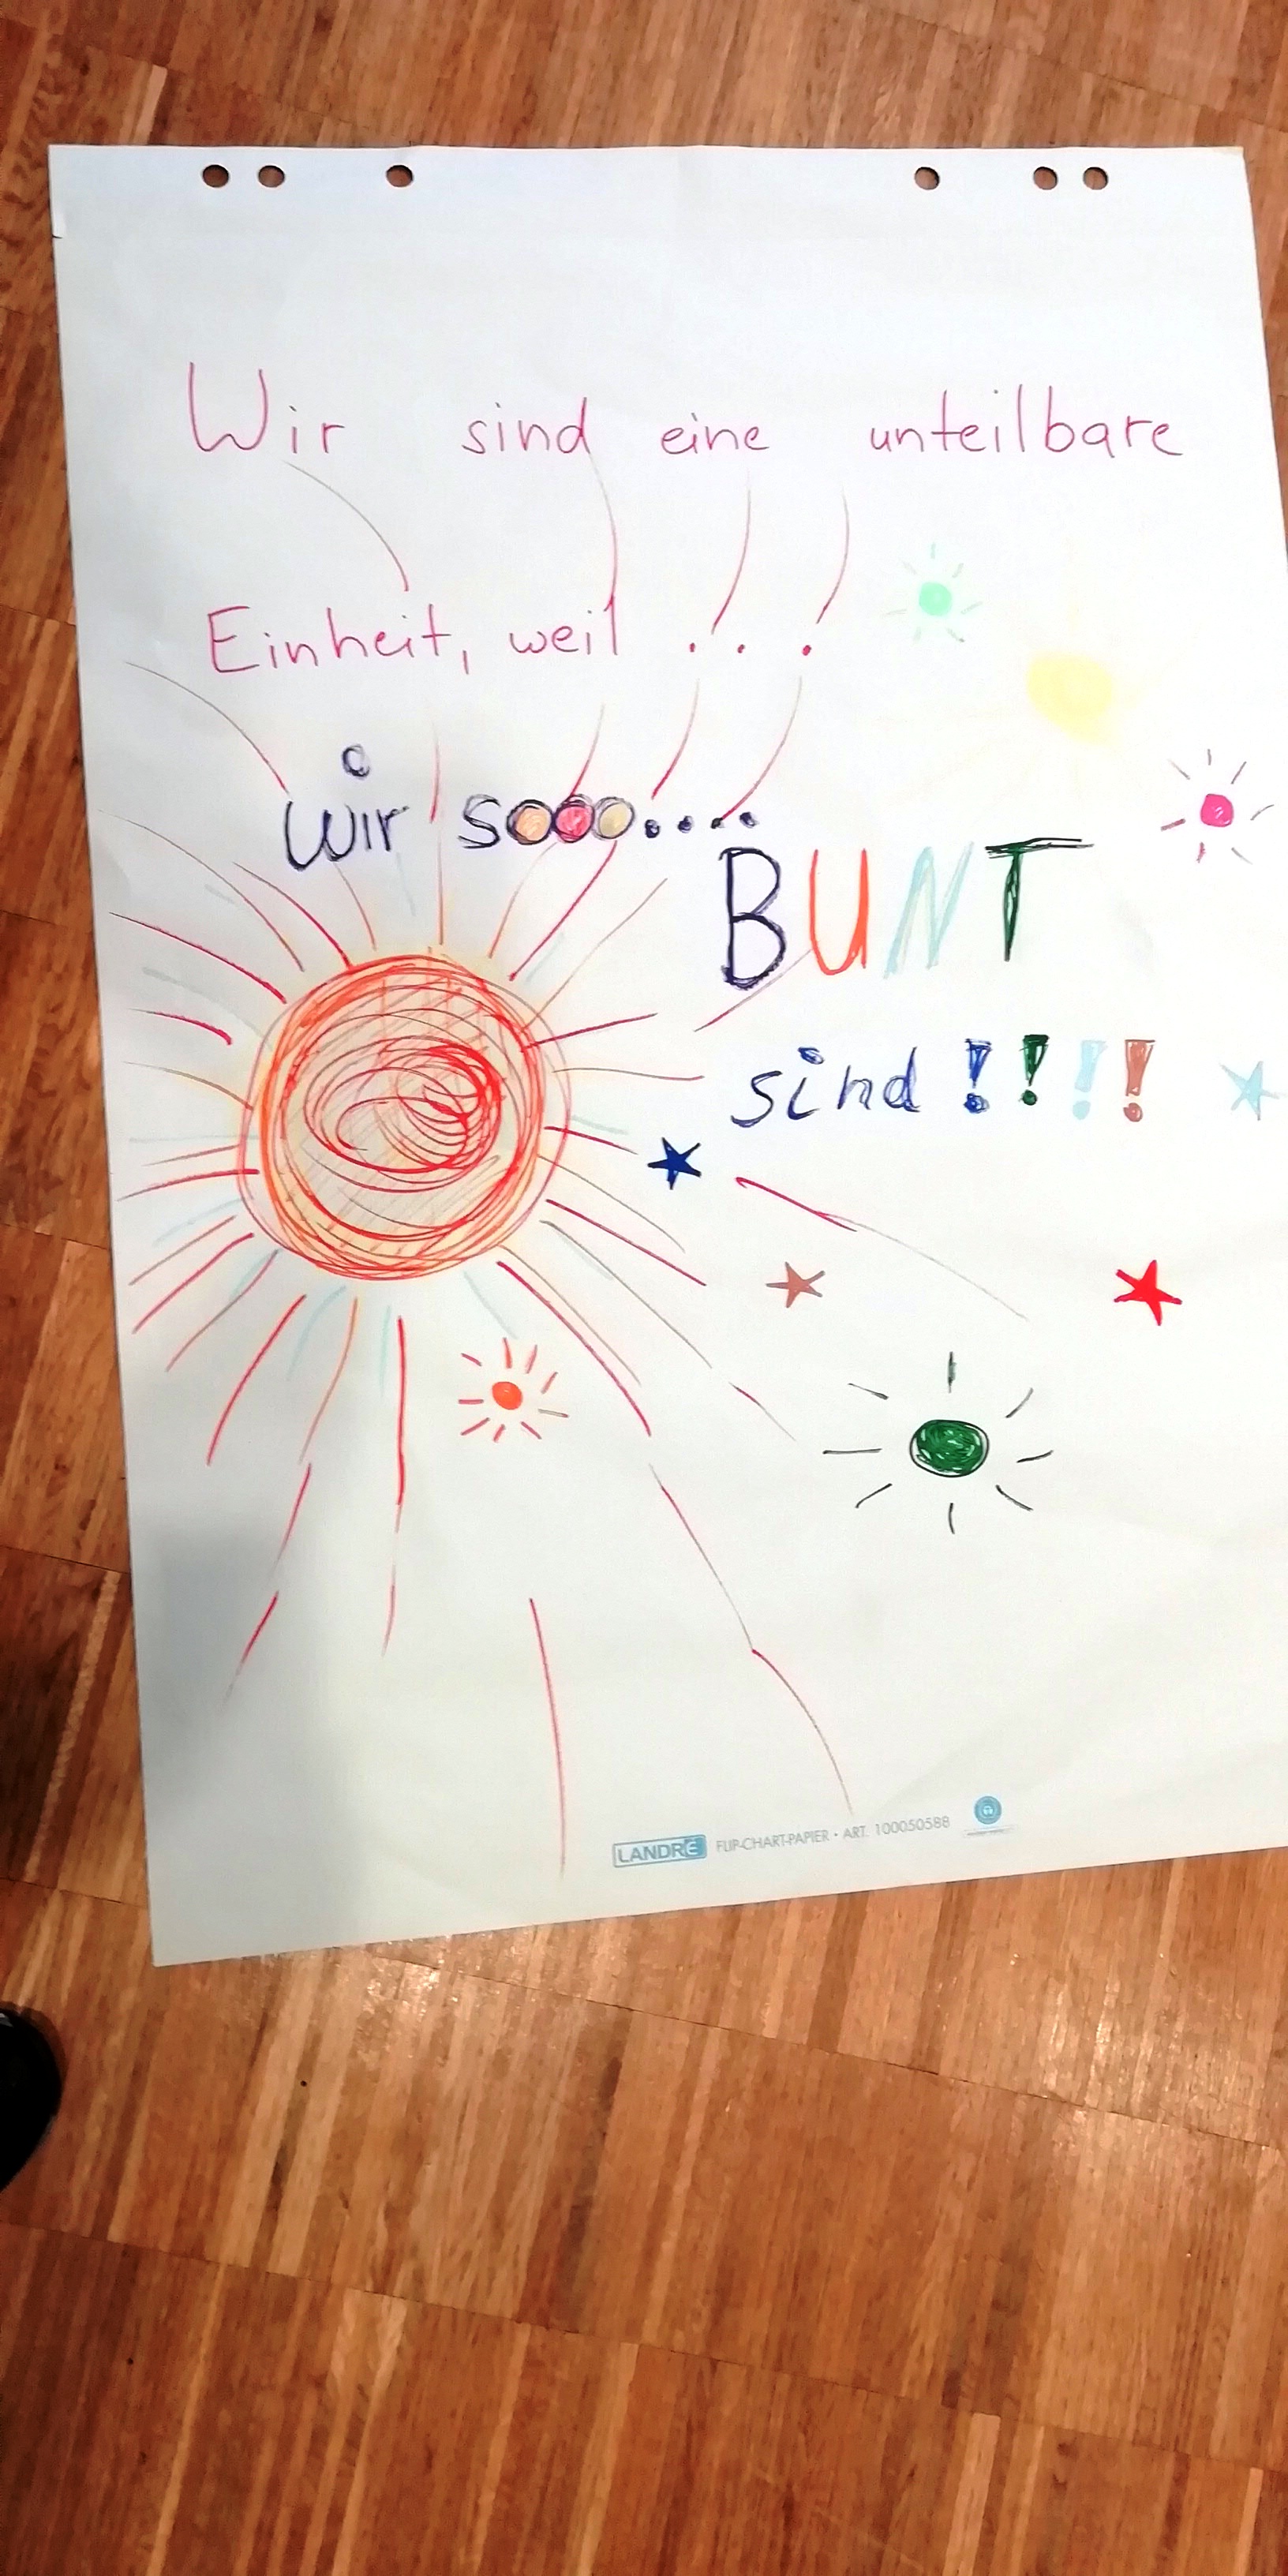 Wir sind eine unteilbare
Einheit, weil ...
wir sooo....
BUNT
sind !!!!
LANDRÉ FLIP-CHART-PAPIER • ART. 100050588